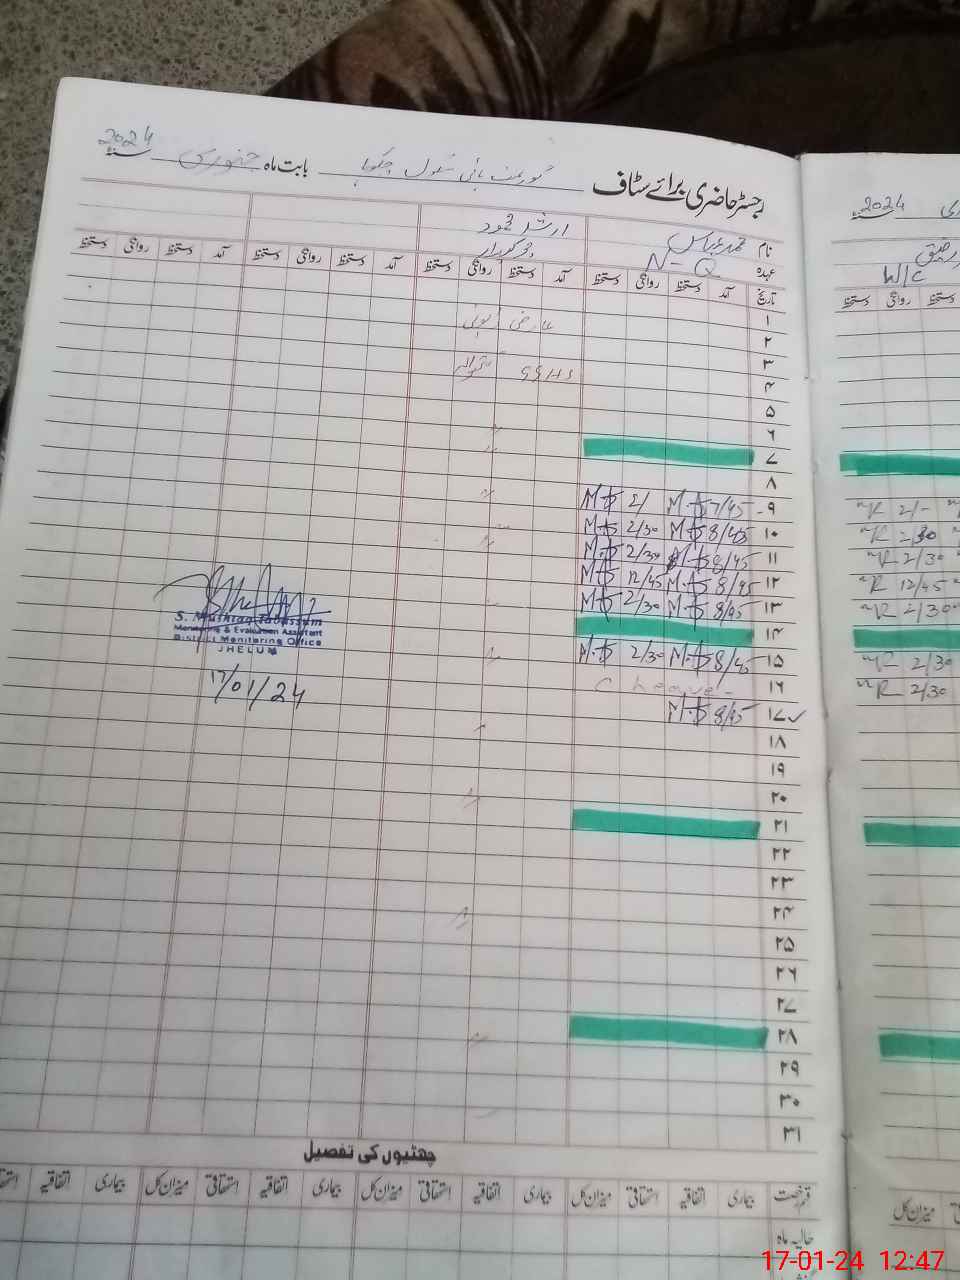 2024
رجسٹر حاضری برائے سٹاف گورنمنٹ ہائی سکول بابت ماہ جنوری سنہ 2024
نام محمد عباس ارشد محمود
عہدہ N-Q چوکیدار W/C
تاریخ آمد دستخط روانگی دستخط آمد دستخط روانگی دستخط آمد دستخط روانگی دستخط آمد دستخط روانگی دستخط
۱ عارضی
۲
۳ GGHS
۴
۵
۶
۷
۸
۹ 7/45 M.A 2/ M.A R 2/-
۱۰ 8/45 M.A 2/30 M.A R 2/30
۱۱ 8/45 M.A 2/30 M.A R 2/30
۱۲ 8/45 M.A 12/45 M.A R 12/45
۱۳ 8/45 M.A 2/30 M.A R 2/30
۱۴
۱۵ 8/45 M.A 2/30 M.A R 2/30
۱۶ C Leave - R 2/30
۱۷ 8/45 M.A
۱۸
۱۹
۲۰
۲۱
۲۲
۲۳
۲۴
۲۵
۲۶
۲۷
۲۸
۲۹
۳۰
۳۱
S. Mushtaq Tabassum
Monitoring & Evaluation Assistant
District Monitoring Office
JHELUM
17/01/24
چھٹیوں کی تفصیل
قسم رخصت بیماری اتفاقیہ استحقاقی میزان کل بیماری اتفاقیہ استحقاقی میزان کل بیماری اتفاقیہ استحقاقی میزان کل بیماری اتفاقیہ
حالیہ ماہ
17-01-24 12:47